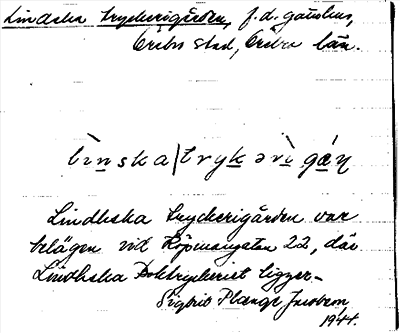 Lindska tryckerigården, f.d. gästhus,
Örebro stad, Örebro län.
lìnska|trykərìgáṇ
Lindhska tryckerigården var
belägen vid Köpmangatan 22, där
Lindhska Boktryckeriet ligger.
Sigbrit Plænge Jacobson
1944.